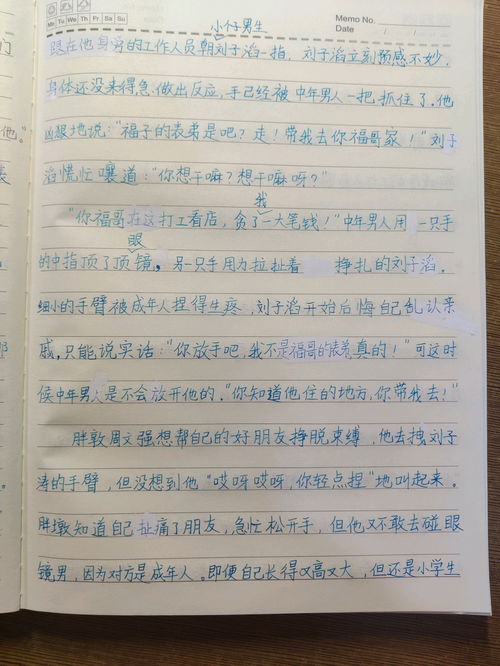 Mo Tu We Th Fr Sa Su
Memo No.
Date / /
小个子男生
跟在他身旁的工作人员朝刘子滔一指，刘子滔立刻预感不妙，
身体还没来得急做出反应，手已经被中年男人一把抓住了。他
凶狠地说："福子的表弟是吧？走！带我去你福哥家！"刘子
滔慌忙嚷道："你想干嘛？想干嘛呀？"
我
"你福哥在这打工看店，贪了一大笔钱！"中年男人用一只手
眼
的中指顶了顶镜，另一只手用力拉扯着挣扎的刘子滔。
细小的手臂被成年人捏得生疼，刘子滔开始后悔自己乱认亲
戚，只能说实话："你放手吧，我不是福哥的表弟真的！"可这时
候中年男人是不会放开他的。"你知道他住的地方，你带我去！"
胖敦周文强想帮自己的好朋友挣脱束缚，他去拽刘子
涛的手臂，但没想到他"哎呀哎呀，你轻点捏"地叫起来。
胖墩知道自己扯痛了朋友，急忙松开手，但他又不敢去碰眼
镜男，因为对方是成年人。即便自己长得又高又大，但还是小学生
们
他。"